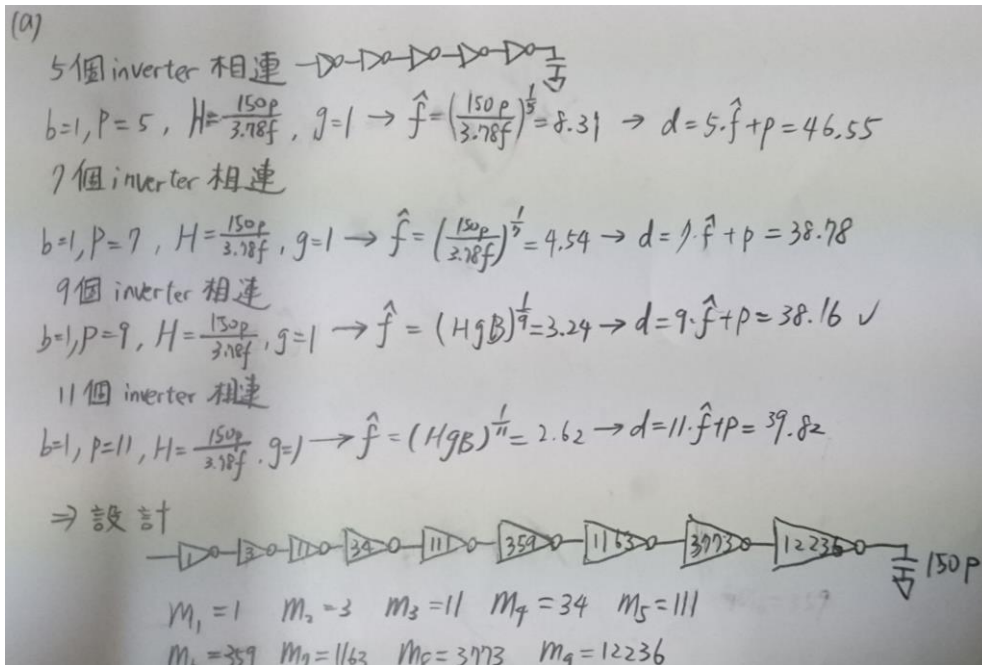 (a)
5個inverter 相連
b=1, P=5, H=150p/3.78f, g=1 → f̂=(150p/3.78f)^(1/5)=8.31 → d=5·f̂+p=46.55
7個inverter 相連
b=1, P=7, H=150p/3.78f, g=1 → f̂=(150p/3.78f)^(1/7)=4.54 → d=7·f̂+p=38.78
9個 inverter 相連
b=1, P=9, H=150p/3.78f, g=1 → f̂=(HgB)^(1/9)=3.24 → d=9·f̂+p=38.16 ✓
11個 inverter 相連
b=1, p=11, H=150p/3.78f, g=1 → f̂=(HgB)^(1/11)=2.62 → d=11·f̂+p=39.82
⇒ 設計
1 3 11 34 111 359 1163 3773 12236 150p
m₁=1 m₂=3 m₃=11 m₄=34 m₅=111
=359 m₇=1163 =3773 m₉=12236